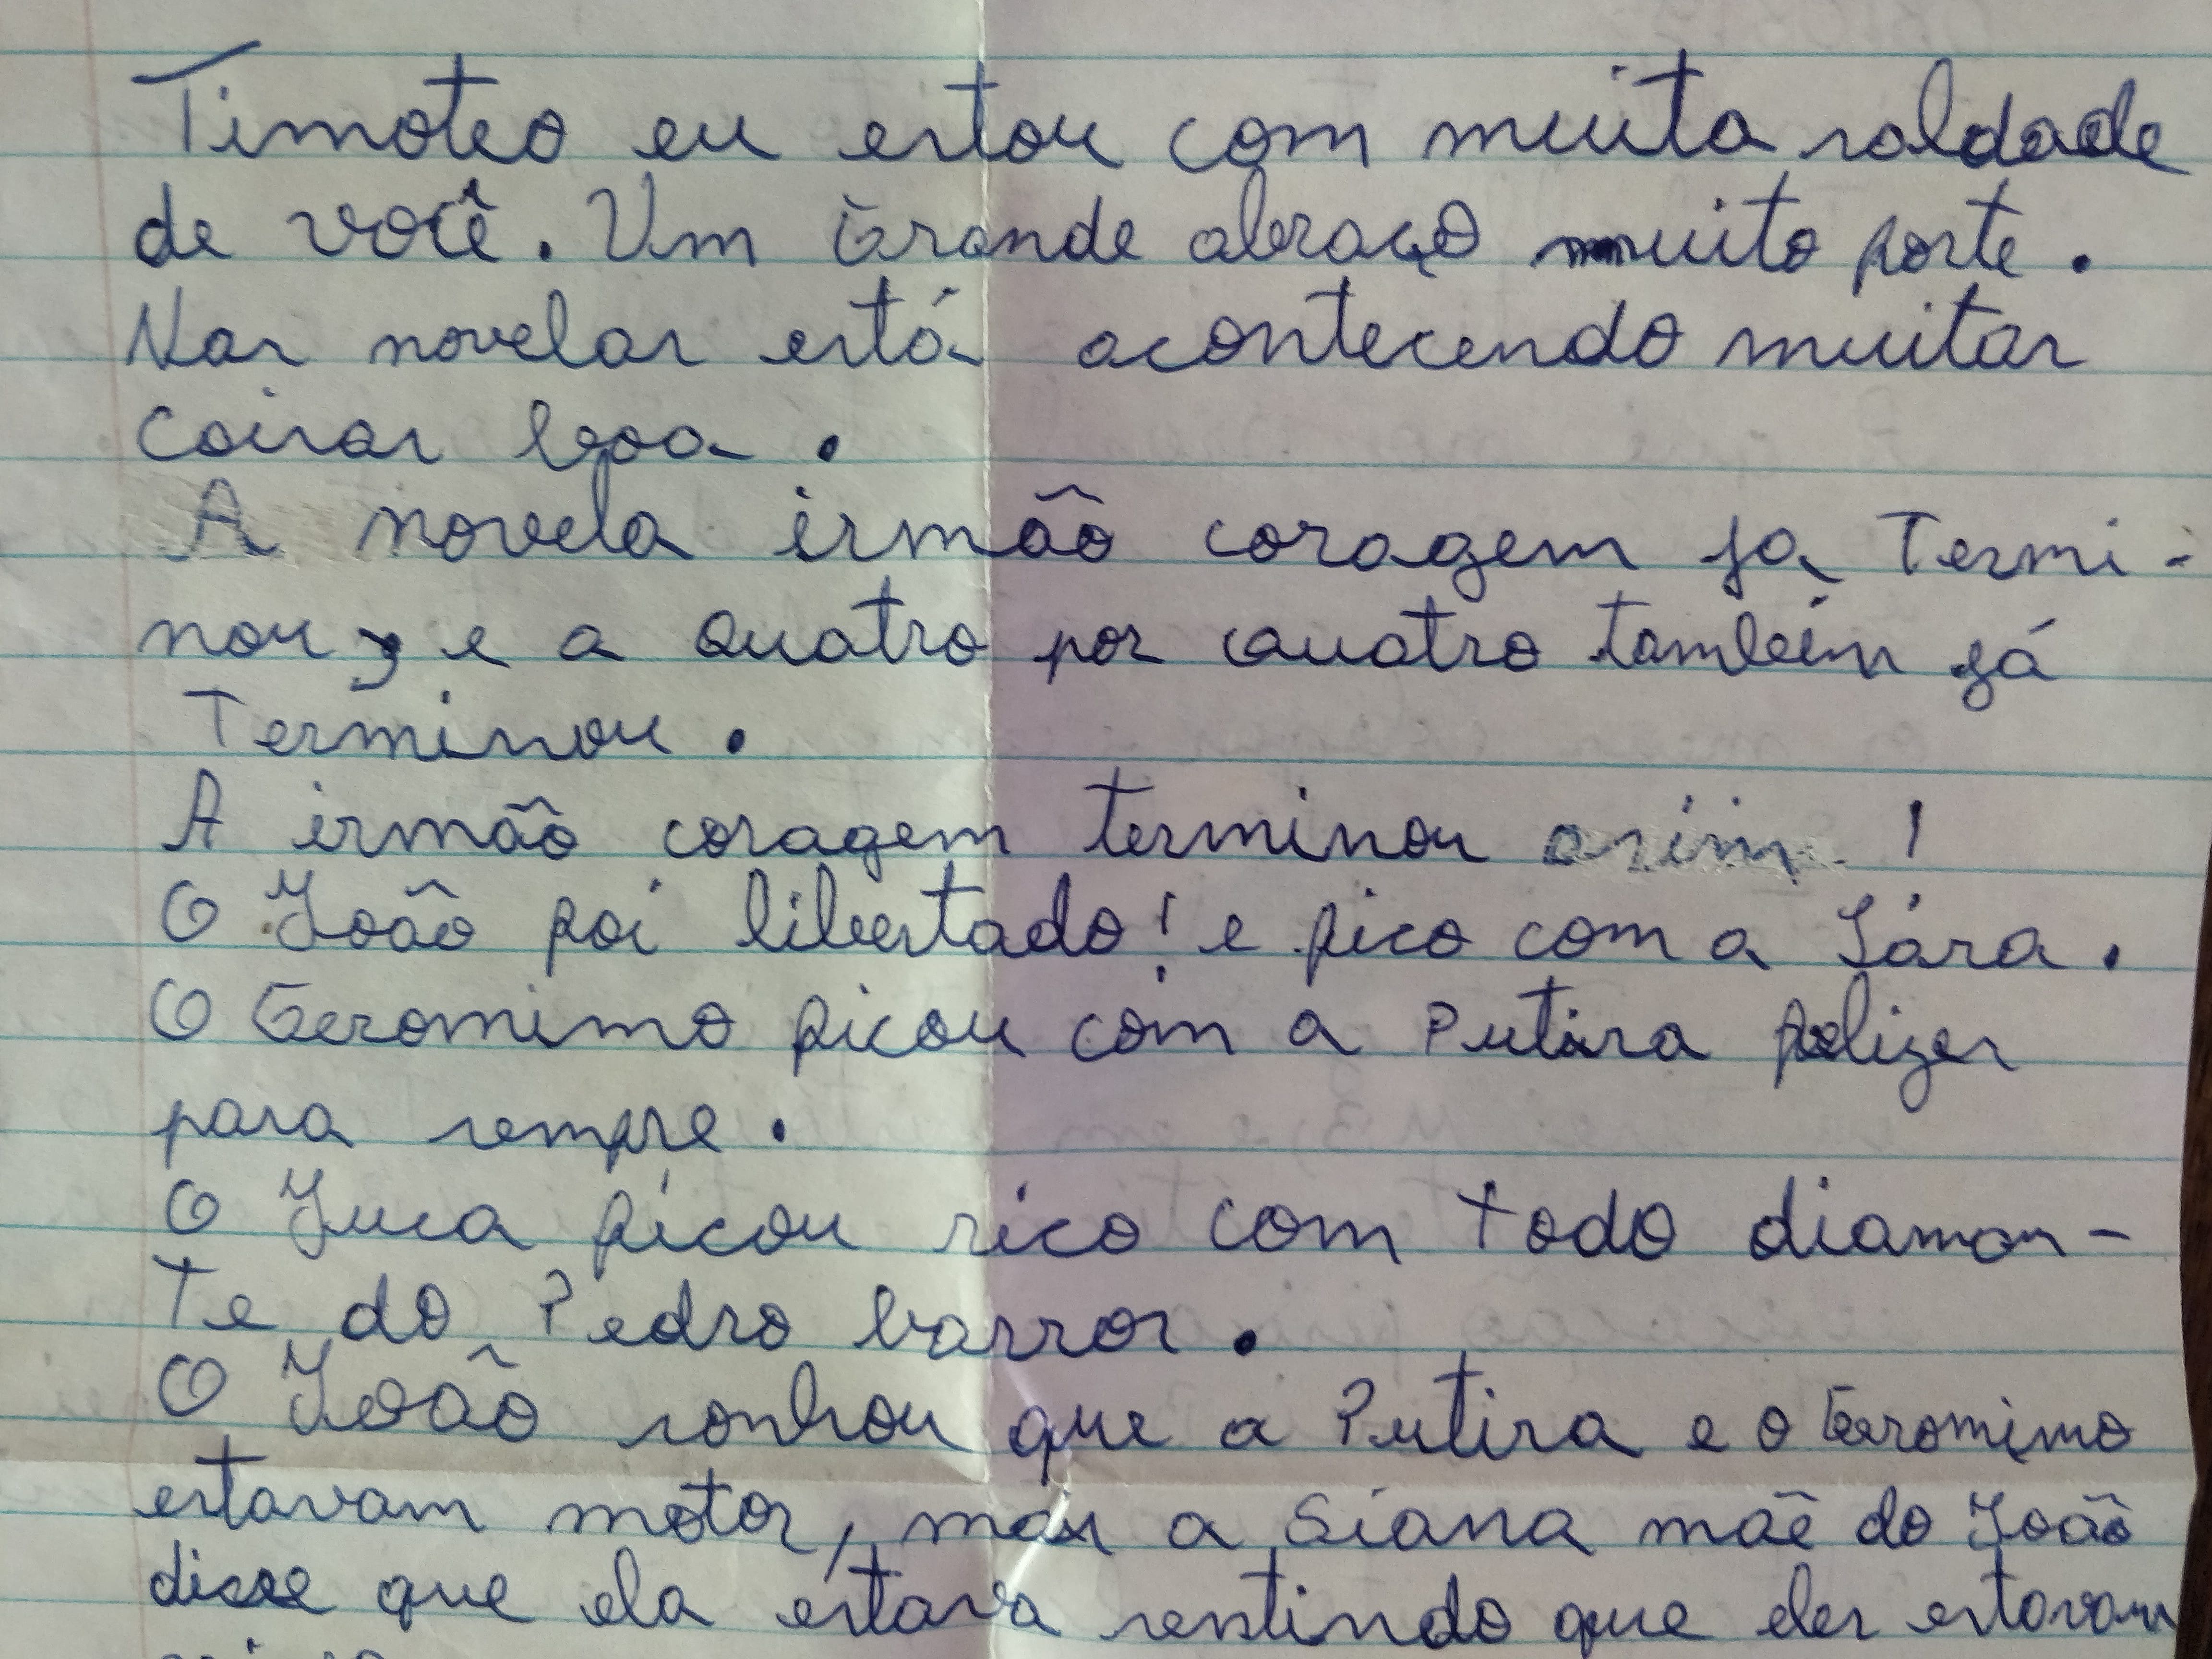 Timoteo eu estou com muita saldade
de você. Um Grande abraço muito forte.
Nas novelas está acontecendo muitas
coisas boa.
A novela irmão coragem ja Termi-
nou, e a Quatro por Quatro também já
Terminou.
A irmão coragem terminou asim!
O João foi libertado! e fico com a Lára.
O Geromimo ficou com a Putira felizes
para sempre.
O Juca ficou rico com todo diaman-
Te do Pedro barros.
O João sonhou que a Putira e o Geromimo
estavam motos, mas a Siana mãe do João
disse que ela estava sentindo que eles estavam